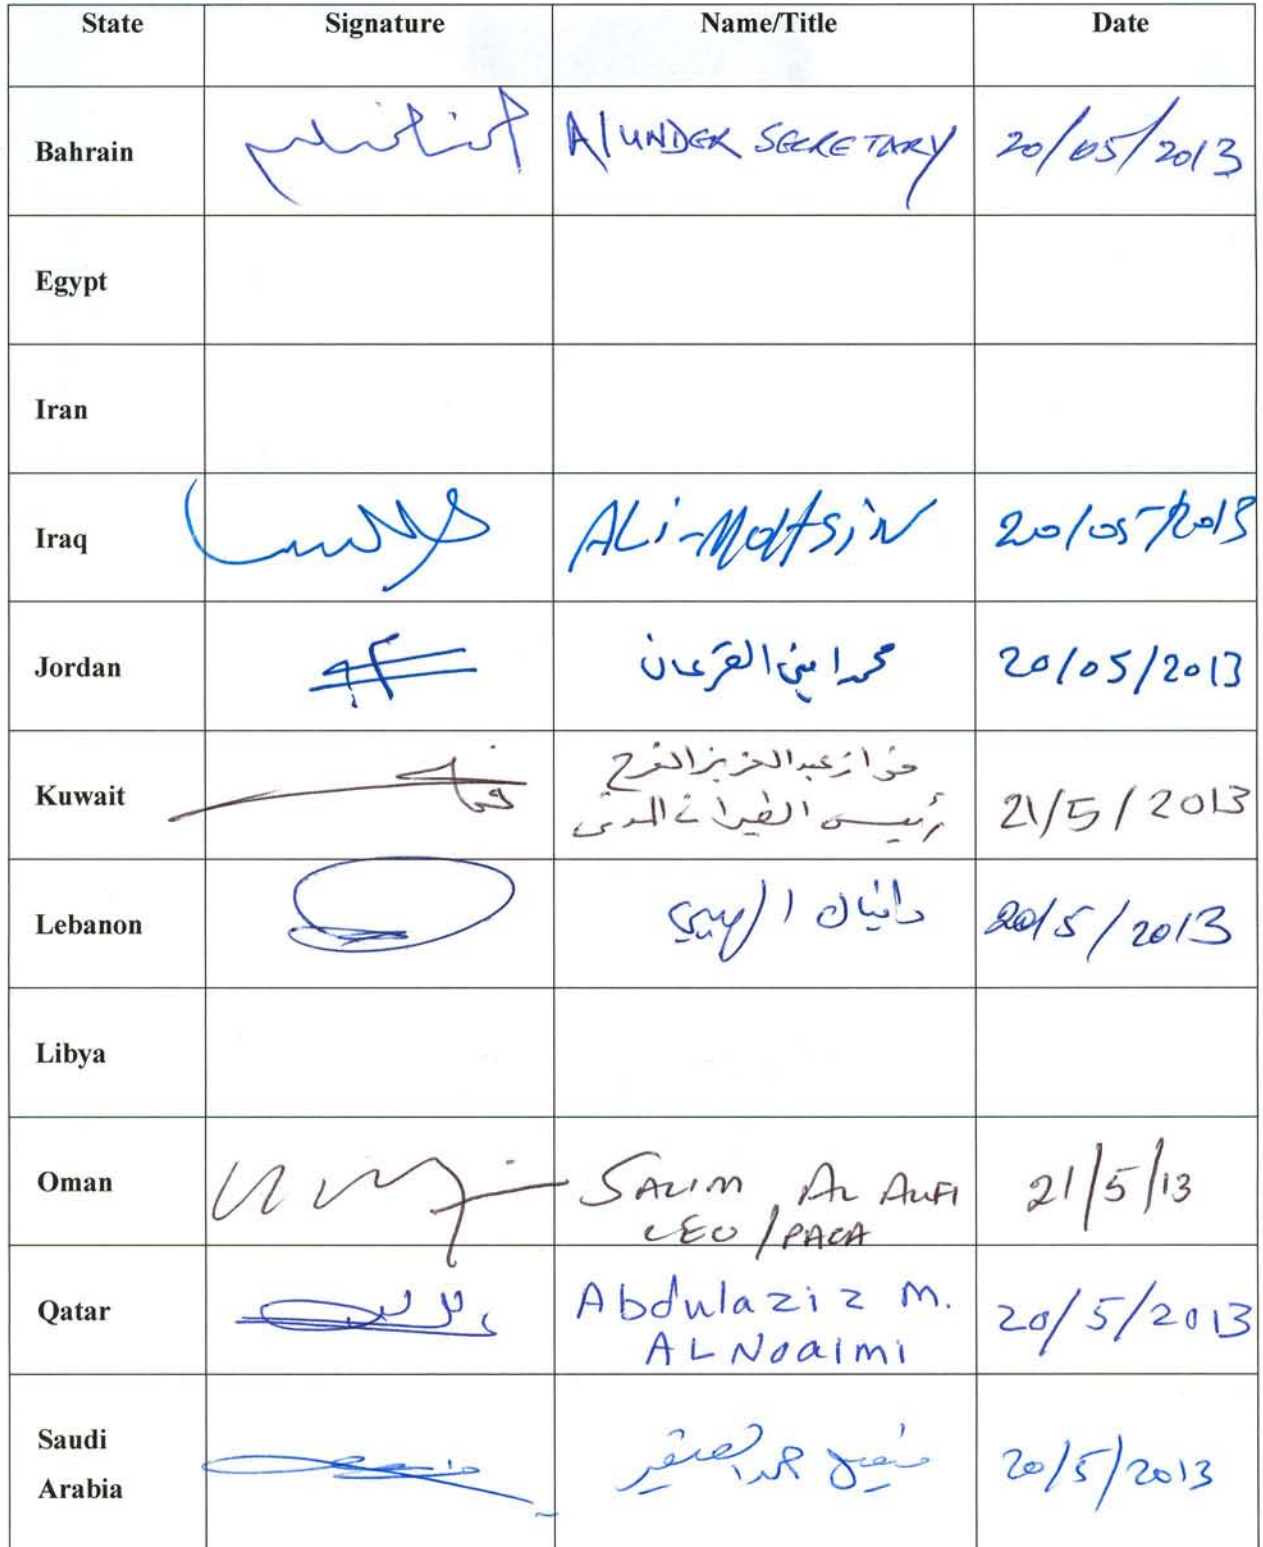 State Signature Name/Title Date
Bahrain A/UNDER SECRETARY 20/05/2013
Egypt
Iran
Iraq ALi-MOHSiN 20/05/2013
Jordan محمد امين القرعان 20/05/2013
Kuwait فواز عبدالعزيز الفرح
رئيس الطيران المدني 21/5/2013
Lebanon دانيال الهيبي 20/5/2013
Libya
Oman SALIM AL AUFI 21/5/13
CEO/PACA
Qatar Abdulaziz M. 20/5/2013
AL NOAIMI
Saudi
Arabia فيصل حمد الصقير 20/5/2013